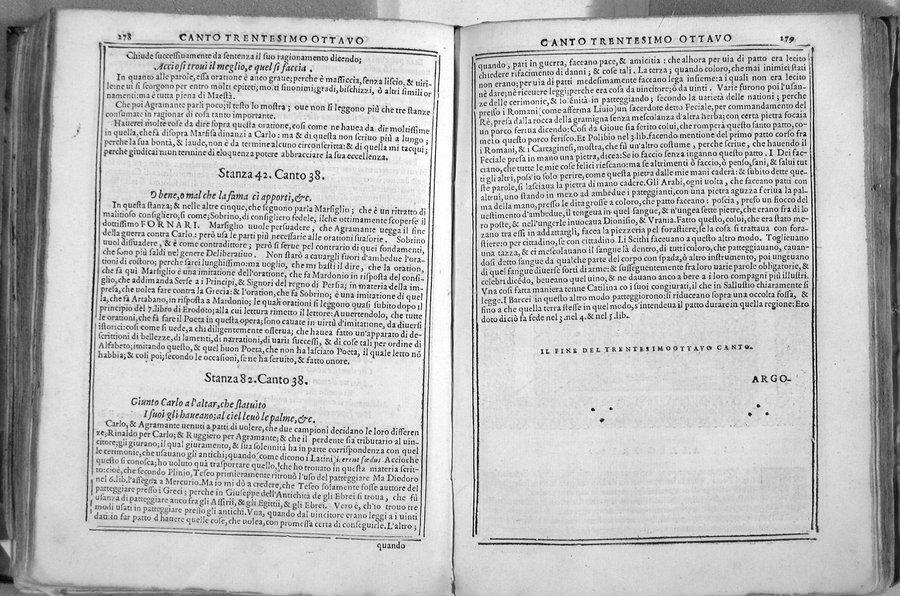 278 CANTO TRENTESIMO OTTAVO
Chiude successiuamente da sentenza il suo ragionamento dicendo;
Accio si troui il meglio, e quel si faccia.
In quanto alle parole, essa oratione è anco graue; perche è massiccia, senza liscio, & uiri-
le: ne ui si scorgono per entro molti epiteti; moti sinonimi; gradi, bischizzi, ò altri simili or
namenti: ma è tutta piena di Maestà.
Che poi Agramante parli poco; il testo lo mostra; oue non si leggono più che tre stanze
consumate in ragionar di cosa tanto importante.
Hauerei molte cose da dire sopra questa oratione, cosi come ne hauea da dir moltissime
in quella, che fa disopra Marfisa dinanzi a Carlo: ma & di questa non scriuo più a lungo;
perche la sua bontà, & laude, non è da termine alcuno circonscritta: & di quella mi tacqui;
perche giudicai niun termine di eloquenza potere abbracciare la sua eccellenza.
Stanza 42. Canto 38.
O bene, o mal che la fama ci apporti, &c.
In questa stanza; & nelle altre cinque, che seguono parla Marsiglio; che è un ritratto di
malitioso consigliero, si come; Sobrino, di consigliero fedele, ilche ottimamente scoperse il
dottissimo FORNARI. Marsiglio uuole persuadere, che Agramante uegga il fine
della guerra contra Carlo: però usa le parti più necessarie alle orationi suasorie. Sobrino
uuol dissuadere, & è come contradittore; però si serue pel contrario di quei fondamenti,
che sono più saldi nel genere Deliberatiuo. Non starò a cauargli fuori d'ambedue l'ora-
tioni di costoro; perche sarei lunghissimo: ma uoglio, che mi basti il dire, che la oration,
che fa quì Marsiglio è una imitatione dell'oratione, che fa Mardonio in risposta del consi-
glio, che addimanda Serse a i Principi, & Signori del regno di Persa; in materia della im-
presa, che uolea fare contra la Grecia: & l'oratione, che fa Sobrino; è una imitatione di quel
la, che fa Artabano, in risposta a Mardonio; le quai orationi si leggono quasi subito dopo il
principio del 7. libro di Erodoto; alla cui lettura rimetto il lettore: Auuertendolo, che tutte
le orationi, che fà fare il Poeta in questa opera; sono cauate in uirtù d'imitatione, da diuersi
istorici: cosi come si uede, a chi diligentemente osserua; che hauea fatto un'apparato di de-
scrittioni di bellezze, di lamenti, di narrationi, di uarij successi, & di cose tali per ordine di
Alfabeto; imitando questo, & quel buon Poeta, che non ha lasciato Poeta, il quale letto nõ
habbia; & cosi poi; secondo le occasioni, se ne ha seruito, & fatto onore.
Stanza 82. Canto 38.
Giunto Carlo a l'altar, che statuito
I suoi gli haueano; al ciel leuò le palme, &c.
Carlo, & Agramante uenuti a patti di uolere, che due campioni decidano le loro differen
ze; Rinaldo per Carlo; & Ruggiero per Agramante; & che il perdente sia tributario al uin-
citore; gli giurano; il qual giuramento, & sua solennità ha in parte corrispondenza con quel
le cerimonie, che usauano gli antichi; quando come dicono i Latini foedus Accioche
questo si conosca; ho uoluto quà trasportare quello, che ho trouato in questa materia scrit-
to: cioè, che secondo Plinio, Teseo primieramente ritrouò l'uso del patteggiare Ma Diodoro
nel 6. lib. l'assegna a Mercurio. Ma io mi dò a credere, che Teseo solamente fosse autore del
patteggiare presso i Greci; perche in Giuseppe dell'Antichità de gli Ebrei si troua, che fù
usanza di patteggiare anco fra gli Assirij, & gli Egittij, & gli Ebrei. Vero è, ch'io trouo tre
modi usati in patteggiare presso gli antichi. Vna, quando dal uincitore erano leggi a i uinti
dati: in far patto d'hauere quelle cose, che uolea, con promessa certa di conseguirle. L'altro;
quando
CANTO TRENTESIMO OTTAVO 179
quando, pari in guerra, faceano pace, & amicitia: che allhora per uia di patto era lecito
chiedere rifacimento di danni; & cose tali. La terza; quando coloro, che mai inimici stati
non erano; per uia di patti modesimamente faceano lega insieme: a i quali non era lecito
nè dare; nè riceuere leggi; perche era cosa da uincitore; ò da uinti. Varie furono poi l'usan-
ze delle cerimonie, & solẽnità in patteggiando; secondo la uarietà delle nationi; perche
presso i Romani (come afferma Liuio) un sacerdote detto Feciale, per commandamento del
Rè, presa dalla rocca della gramigna senza mescolanza d'altra herba; con certa pietra focaia
un porco feriua dicendo; Cosi da Gioue sia ferito colui, che romperà questo santo patto, co-
me io questo porco ferisco. Et Polibio nel 3. lib. facendo mentione del primo patto corso fra
i Romani, & i Cartaginesi, mostra, che fù un'altro costume, perche scriue, che hauendo il
Feciale presa in mano una pietra, dicea: Se io faccio senza inganno questo patto. I Dei fac-
ciano, che tutte le mie cose felici riescano: ma se altrimenti ò faccio, ò penso, sani, & salui tut
ti gli altri, poss'io solo perire, come questa pietra dalle mie mani caderà: & subito dette que-
ste parole, si lasciaua la pietra di mano cadere. Gli Arabi, ogni uolta, che faceano patti con
altrui, uno stando in mezo ad ambedue i patteggianti, con una pietra aguzza feriua la pal-
ma della mano, presso le dita grosse a coloro, che patto faceano; poscia, preso un fiocco del
uestimento d'ambedue, il tengeua in quel sangue, & n'ungea sette pietre, che erano fra di lo
ro poste, & nell'ungerle inuocaua Dionisio, & Vrania. Fatto questo, colui, che era stato me-
zano tra essi in addattargli, facea la piezzeria pel forastiere, se la cosa si trattaua con fora-
stiero: o per cittadino, se con cittadino. Li Scithi faceuano a questo altro modo. Toglieuano
una tazza, & ci mescolauano il sangue là dentro, di tutti coloro, che patteggiauano, cauan-
dosi detto sangue da qualche parte del corpo con spada, ò altro instrumento, poi ungeuano
di quel sangue diuerse sorti di arme; & susseguentemente fra loro uarie parole obligatorie, &
celebri dicẽdo, beueano quel uino, & ne dauano anco a bere a i loro compagni più illustri.
Vna cosi fatta maniera tenne Catilina co i suoi congiurati, il che in Sallustio chiaramente si
legge. I Barcei in questo altro modo patteggiorono: si riduceano sopra una occolta fossa, &
sino a che quella terra stesse in quel modo, s'intendea il patto durare in quella regione: Ero
doto di ciò fa fede nel 3. nel 4. & nel 5. lib.
IL FINE DEL TRENTESIMOOTTAVO CANTO.
ARGO-